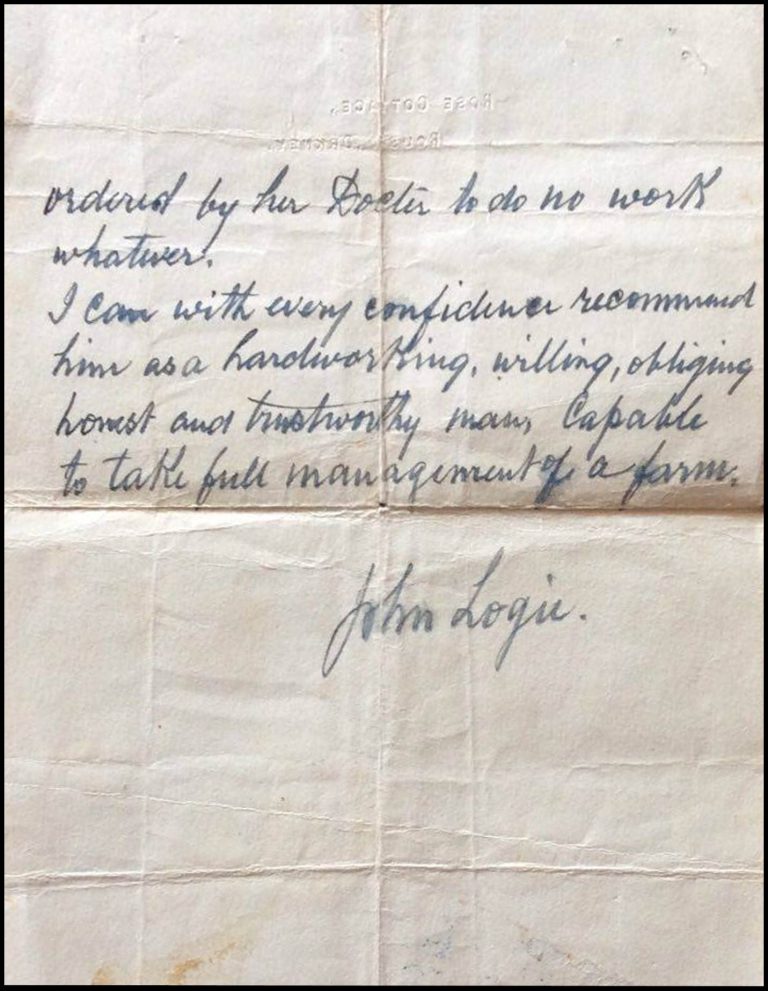 ROSE COTTAGE,
ROUSAY, ORKNEY.
ordered by her Docter to do no work
whatever.
I can with every confidence recommend
him as a hardworking, willing, obliging
honest and trustworthy man, Capable
to take full management of a farm.
John Logie.